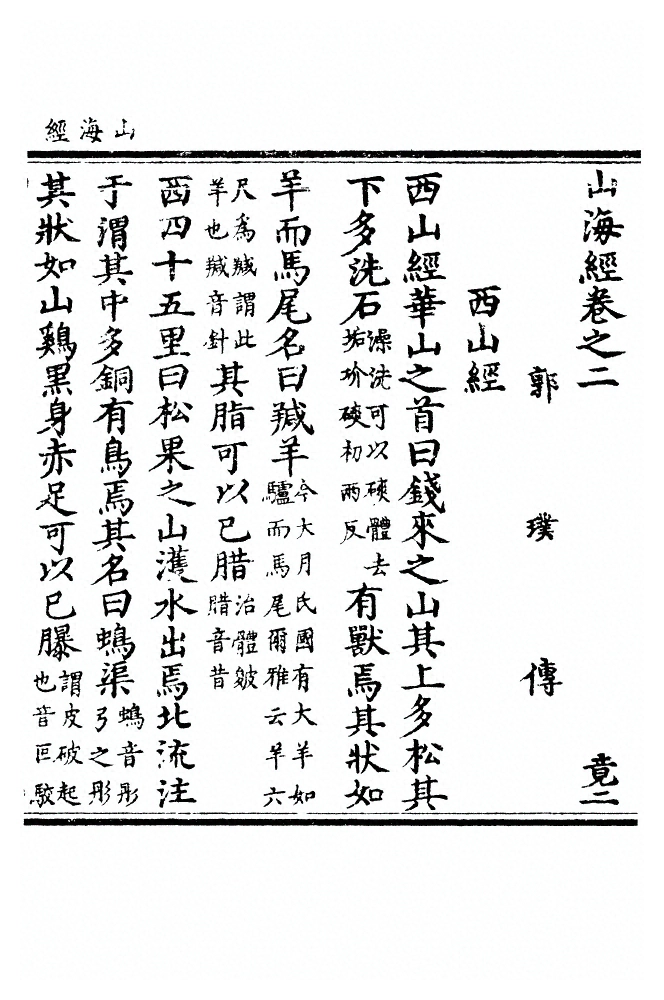 山海經
山海經卷之二 竟二
郭璞傳
西山經
西山經華山之首曰錢來之山其上多松其
下多洗石澡洗可以磢體去垢圿磢初兩反有獸焉其狀如
羊而馬尾名曰羬羊今大月氏國有大羊如驢而馬尾爾雅云羊六
尺爲羬謂此羊也羬音針其脂可以已腊治體皴腊音昔
西四十五里曰松果之山濩水出焉北流注
于謂其中多銅有鳥焉其名曰䳋渠䳋音彤弓之彤
其狀如山鷄黑身赤足可以已𦢊謂皮破起也音叵駮